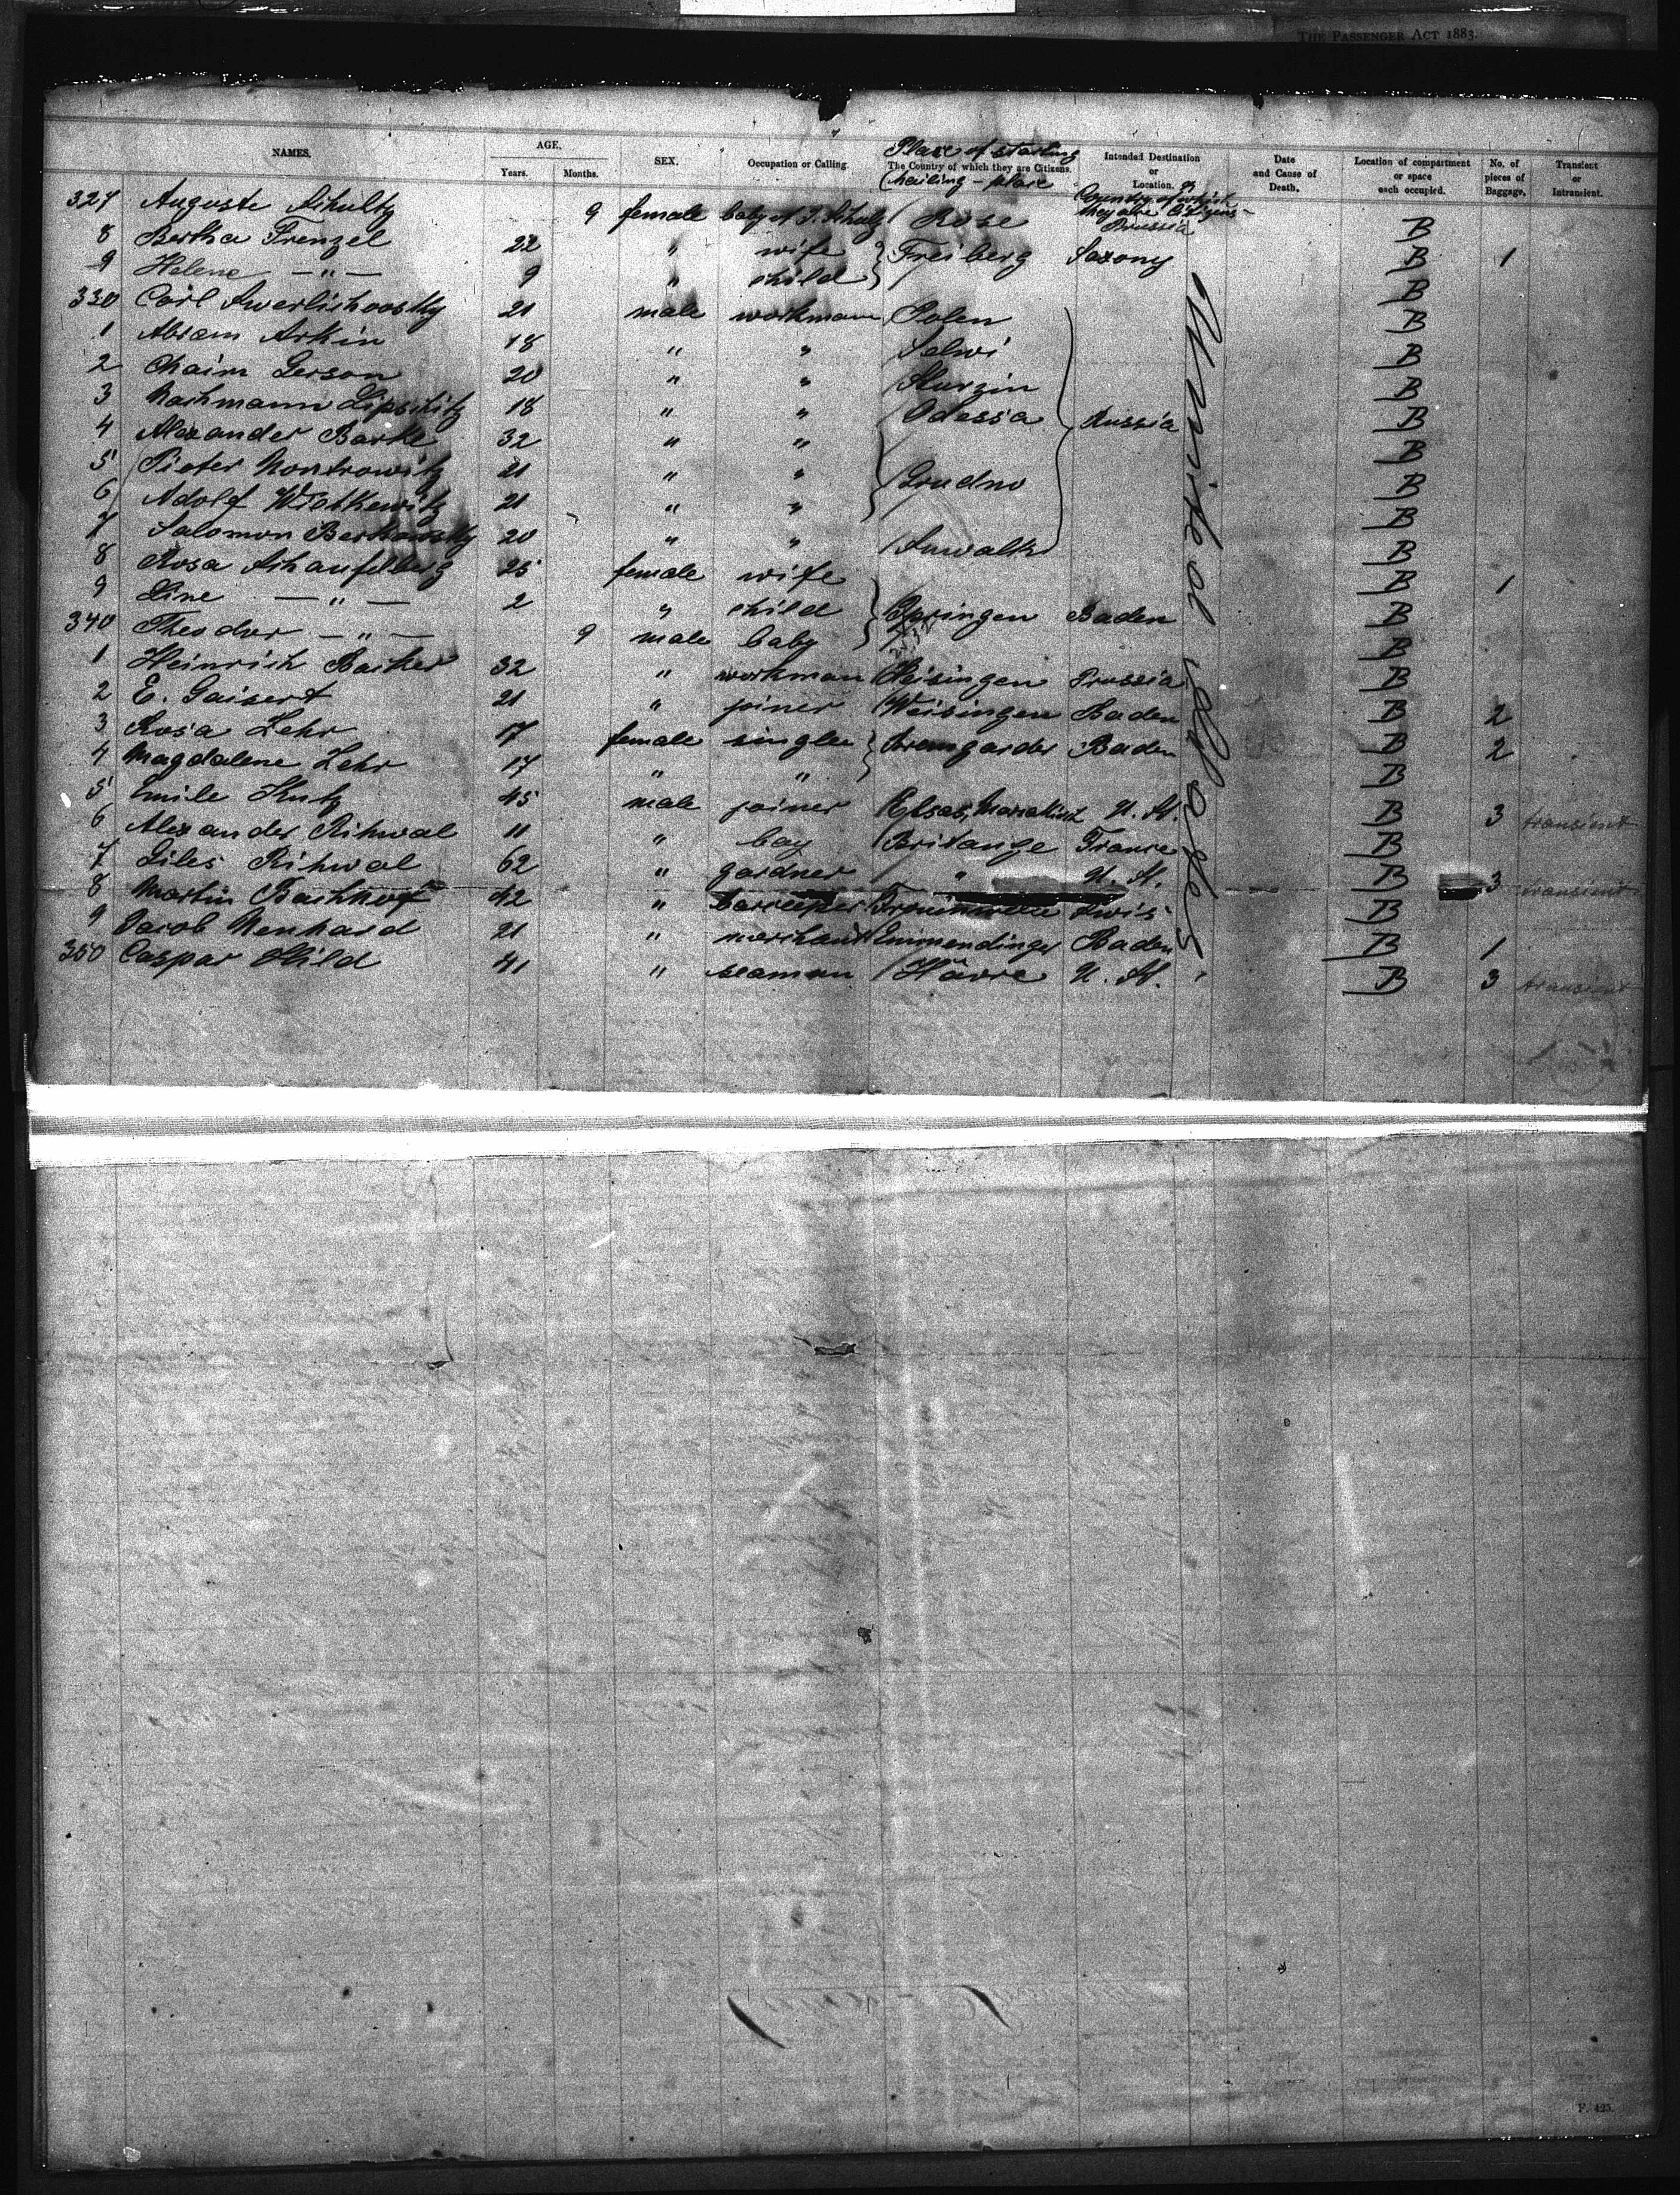 THE PASSENGER ACT 1883.
NAMES. AGE. Years. Months. SEX. Occupation or Calling. Place of starting The Country of which they are Citizens. mailing-place Intended Destination or Location. or Country of which they are Citizens Date and Cause of Death. Location of compartment or space each occupied. No. of pieces of Baggage. Transient or Intransient.
327 Auguste Schultz 9 female baby of J. Schulz Rose Prussia B
8 Bertha Frenzel 22 " wife Freiberg Saxony B 1
9 Helene — " — 9 " child B
330 Carl 21 male workman Polen B
1 Abram Arkin 18 " " Selwi B
2 Chaim Gerson 20 " " B
3 Nachmann Lipschitz 18 " " Odessa Russia B
4 Alexander Bartke 32 " " B
5 Pieter 21 " " Grudno B
6 Adolf Wietkewitz 21 " " B
7 Salomon Berkowsky 20 " " Suwalki B
8 Rosa Schaufelberg 25 female wife B 1
9 Line — " — 2 " child Baden B
340 Theodor — " — 9 male baby B
1 Heinrich Backer 32 " workman Heisingen Prussia B
2 E. Gaisert 21 " joiner Weisingen Baden B 2
3 Rosa Lehr 17 female singler Baden B 2
4 Magdalene Lehr 17 " " B
5 Emile Kutz 45 male joiner Elsas, U. St. B 3 transient
6 Alexander Rihwal 11 " boy Britange France B
7 Giles Rihwal 62 " gardner " U. St. B 3 transient
8 Martin Bachhof 42 " barkeeper Swis B
9 Jacob Menhard 21 " merchant Emmendingen Baden B 1
350 Caspar Hild 41 " seaman Havre U. St. B 3 transient
United States
F. 425.